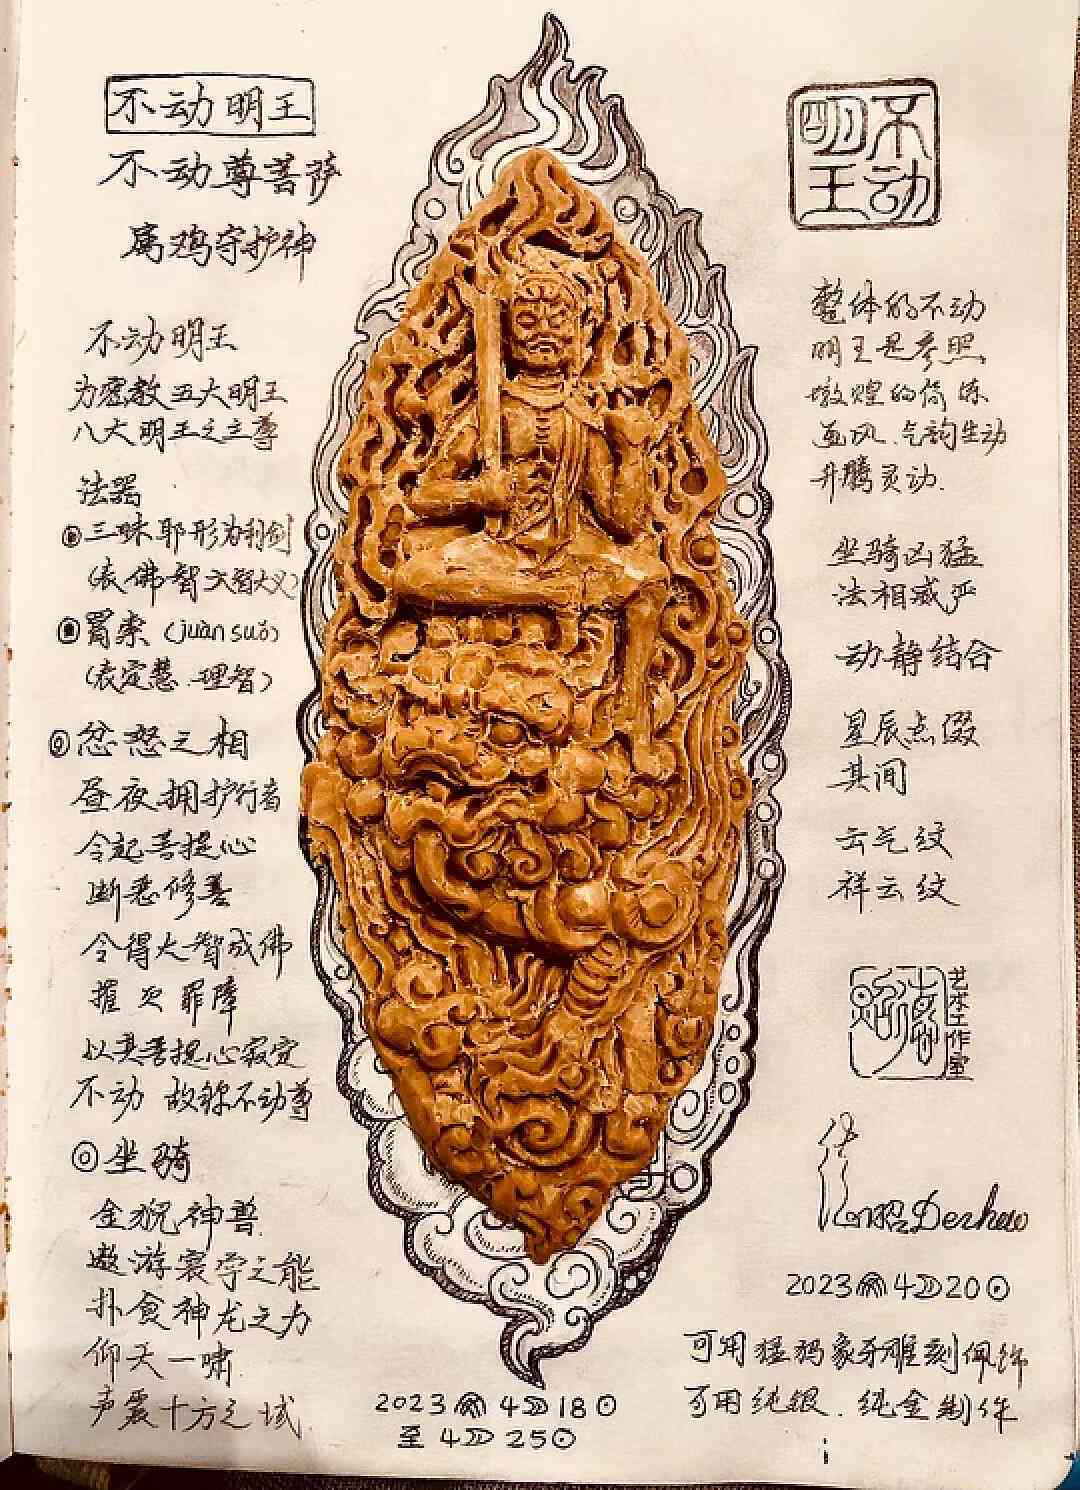 不动明王
不动尊菩萨
属鸡守护神
不动明王
为密教五大明王
八大明王之主尊
法器
三昧耶形为利剑
(表佛智大智大义)
罥索 (juàn suǒ)
(表定慧.理智)
忿怒之相
昼夜拥护行者
令起菩提心
断恶修善
令得大智成佛
摧灭罪障
以其菩提心寂定
不动 故称不动尊
坐骑
金猊神兽
遨游寰宇之能
扑食神龙之力
仰天一啸
声震十方之域.
不动
明王
整体的不动
明王是参照
敦煌的简练
画风.气韵生动
升腾灵动.
坐骑凶猛
法相威严
动静结合
星辰点缀
其间
云气纹
祥云纹
艺术工作室
Dezhao
2023 4 20
可用猛犸象牙雕刻佩饰
可用纯银.纯金制作
2023 4 18
至 4 25